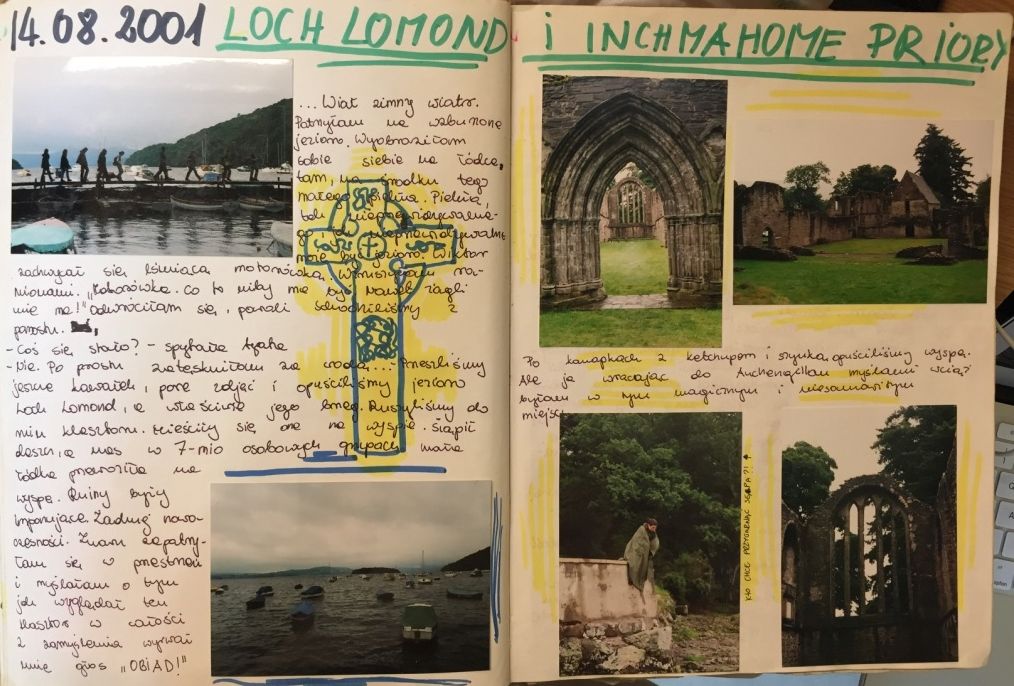 14.08.2001 LOCH LOMOND
...Wiał zimny wiatr.
Patrzyłam na wzburzone
jezioro. Wyobraziłam
sobie siebie na łódce,
tam, na środku tego
małego piekła. Piekła,
tak
jezioro. Wiktor
zachwycał się lśniącą motorówką. Wzruszyłam ra-
mionami. "Motorówka. Co to niby ma być. Nawet żagli
nie ma!" odwróciłam się, i pomału schodziliśmy z
pomostu.
- Coś się stało? - spytała Agata
- Nie. Po prostu zatęskniłam za wodą... Zrobiliśmy
jeszcze kawałek, parę zdjęć i opuściliśmy jezioro
Loch Lomond, a właściwie jego brzeg. Ruszyliśmy do
ruin klasztoru. Mieściły się one na wyspie. Siąpił
deszcz, a nas w 7-mio osobowych grupach mała
łódka przewoziła na
wyspę. Ruiny były
imponujące. Żadnej nowo-
czesności. Znów zapatrzy-
łam się w przestrzeń
i myślałam o tym
jak wyglądał ten
klasztor w całości
Z zamyślenia wyrwał
mnie głos "OBIAD!"
i INCHMAHOME PRIORY
Po kanapkach z ketchupem i szynką opuściliśmy wyspę.
Ale ja wracając do Auchengillan myślami wciąż
byłam w tym magicznym i niesamowitym
miejscu
KTO CHCE PRZYGARNĄĆ SĘPA?!